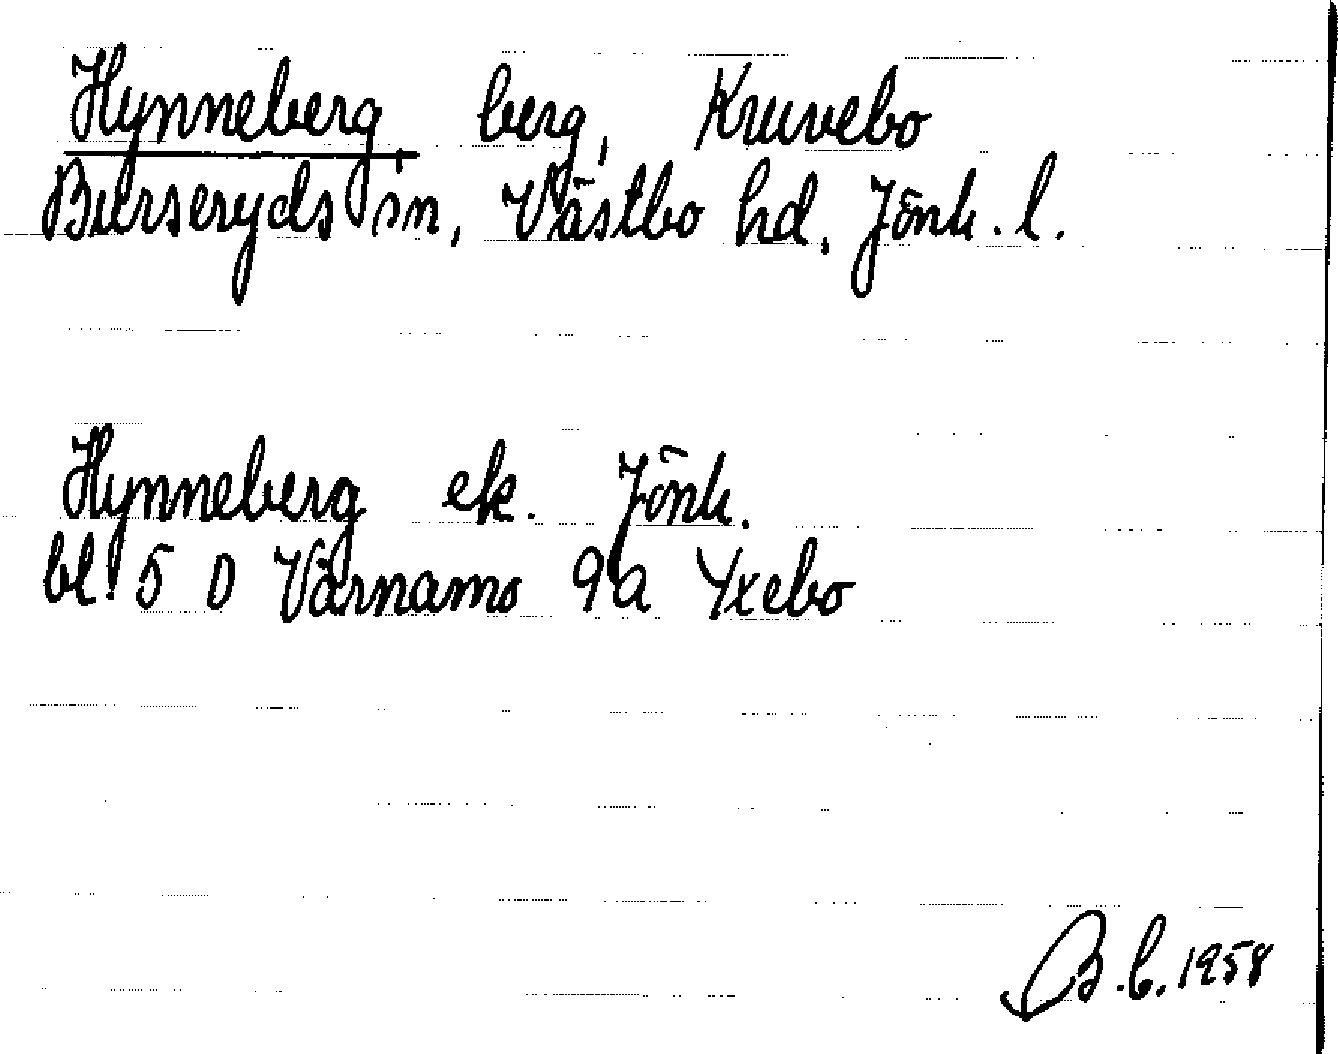 Hynneberg, berg, Kruvebo
Burseryds sn, Västbo hd, Jönk. l.
Hynneberg ek. Jönk.
bl 5 D Värnamo 9a Yxebo
B.C. 1958